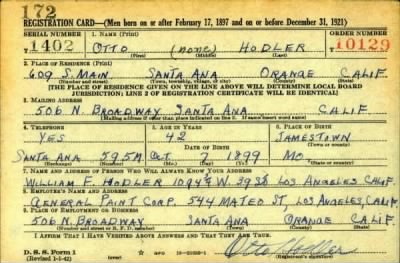 172
REGISTRATION CARD—(Men born on or after February 17, 1897 and on or before December 31, 1921)
SERIAL NUMBER 1. NAME (Print) ORDER NUMBER
T1402 OTTO (none) HODLER T10129
(First) (Middle) (Last)
2. PLACE OF RESIDENCE (Print)
609 S. MAIN, SANTA ANA ORANGE CALIF
(Number and street) (Town, township, village, or city) (County) (State)
[THE PLACE OF RESIDENCE GIVEN ON THE LINE ABOVE WILL DETERMINE LOCAL BOARD
JURISDICTION; LINE 2 OF REGISTRATION CERTIFICATE WILL BE IDENTICAL]
3. MAILING ADDRESS
506 N. BROADWAY SANTA ANA CALIF
[Mailing address if other than place indicated on line 2. If same insert word same]
4. TELEPHONE 5. AGE IN YEARS 6. PLACE OF BIRTH
YES 42 JAMESTOWN
DATE OF BIRTH (Town or county)
SANTA ANA OCT 7 1899 MO.
(Exchange) (Number) (Mo.) (Day) (Yr.) (State or country)
7. NAME AND ADDRESS OF PERSON WHO WILL ALWAYS KNOW YOUR ADDRESS
WILLIAM F. HODLER W. LOS ANGELES, CALIF.
8. EMPLOYER'S NAME AND ADDRESS
GENERAL PAINT CORP. 544 MATEO ST, LOS ANGELES, CALIF
9. PLACE OF EMPLOYMENT OR BUSINESS
506 N. BROADWAY SANTA ANA ORANGE CALIF
(Number and street or R. F. D. number) (Town) (County) (State)
I AFFIRM THAT I HAVE VERIFIED ABOVE ANSWERS AND THAT THEY ARE TRUE.
D. S. S. Form 1
(Revised 1-1-42) (over) Otto Hodler
(Registrant's signature)